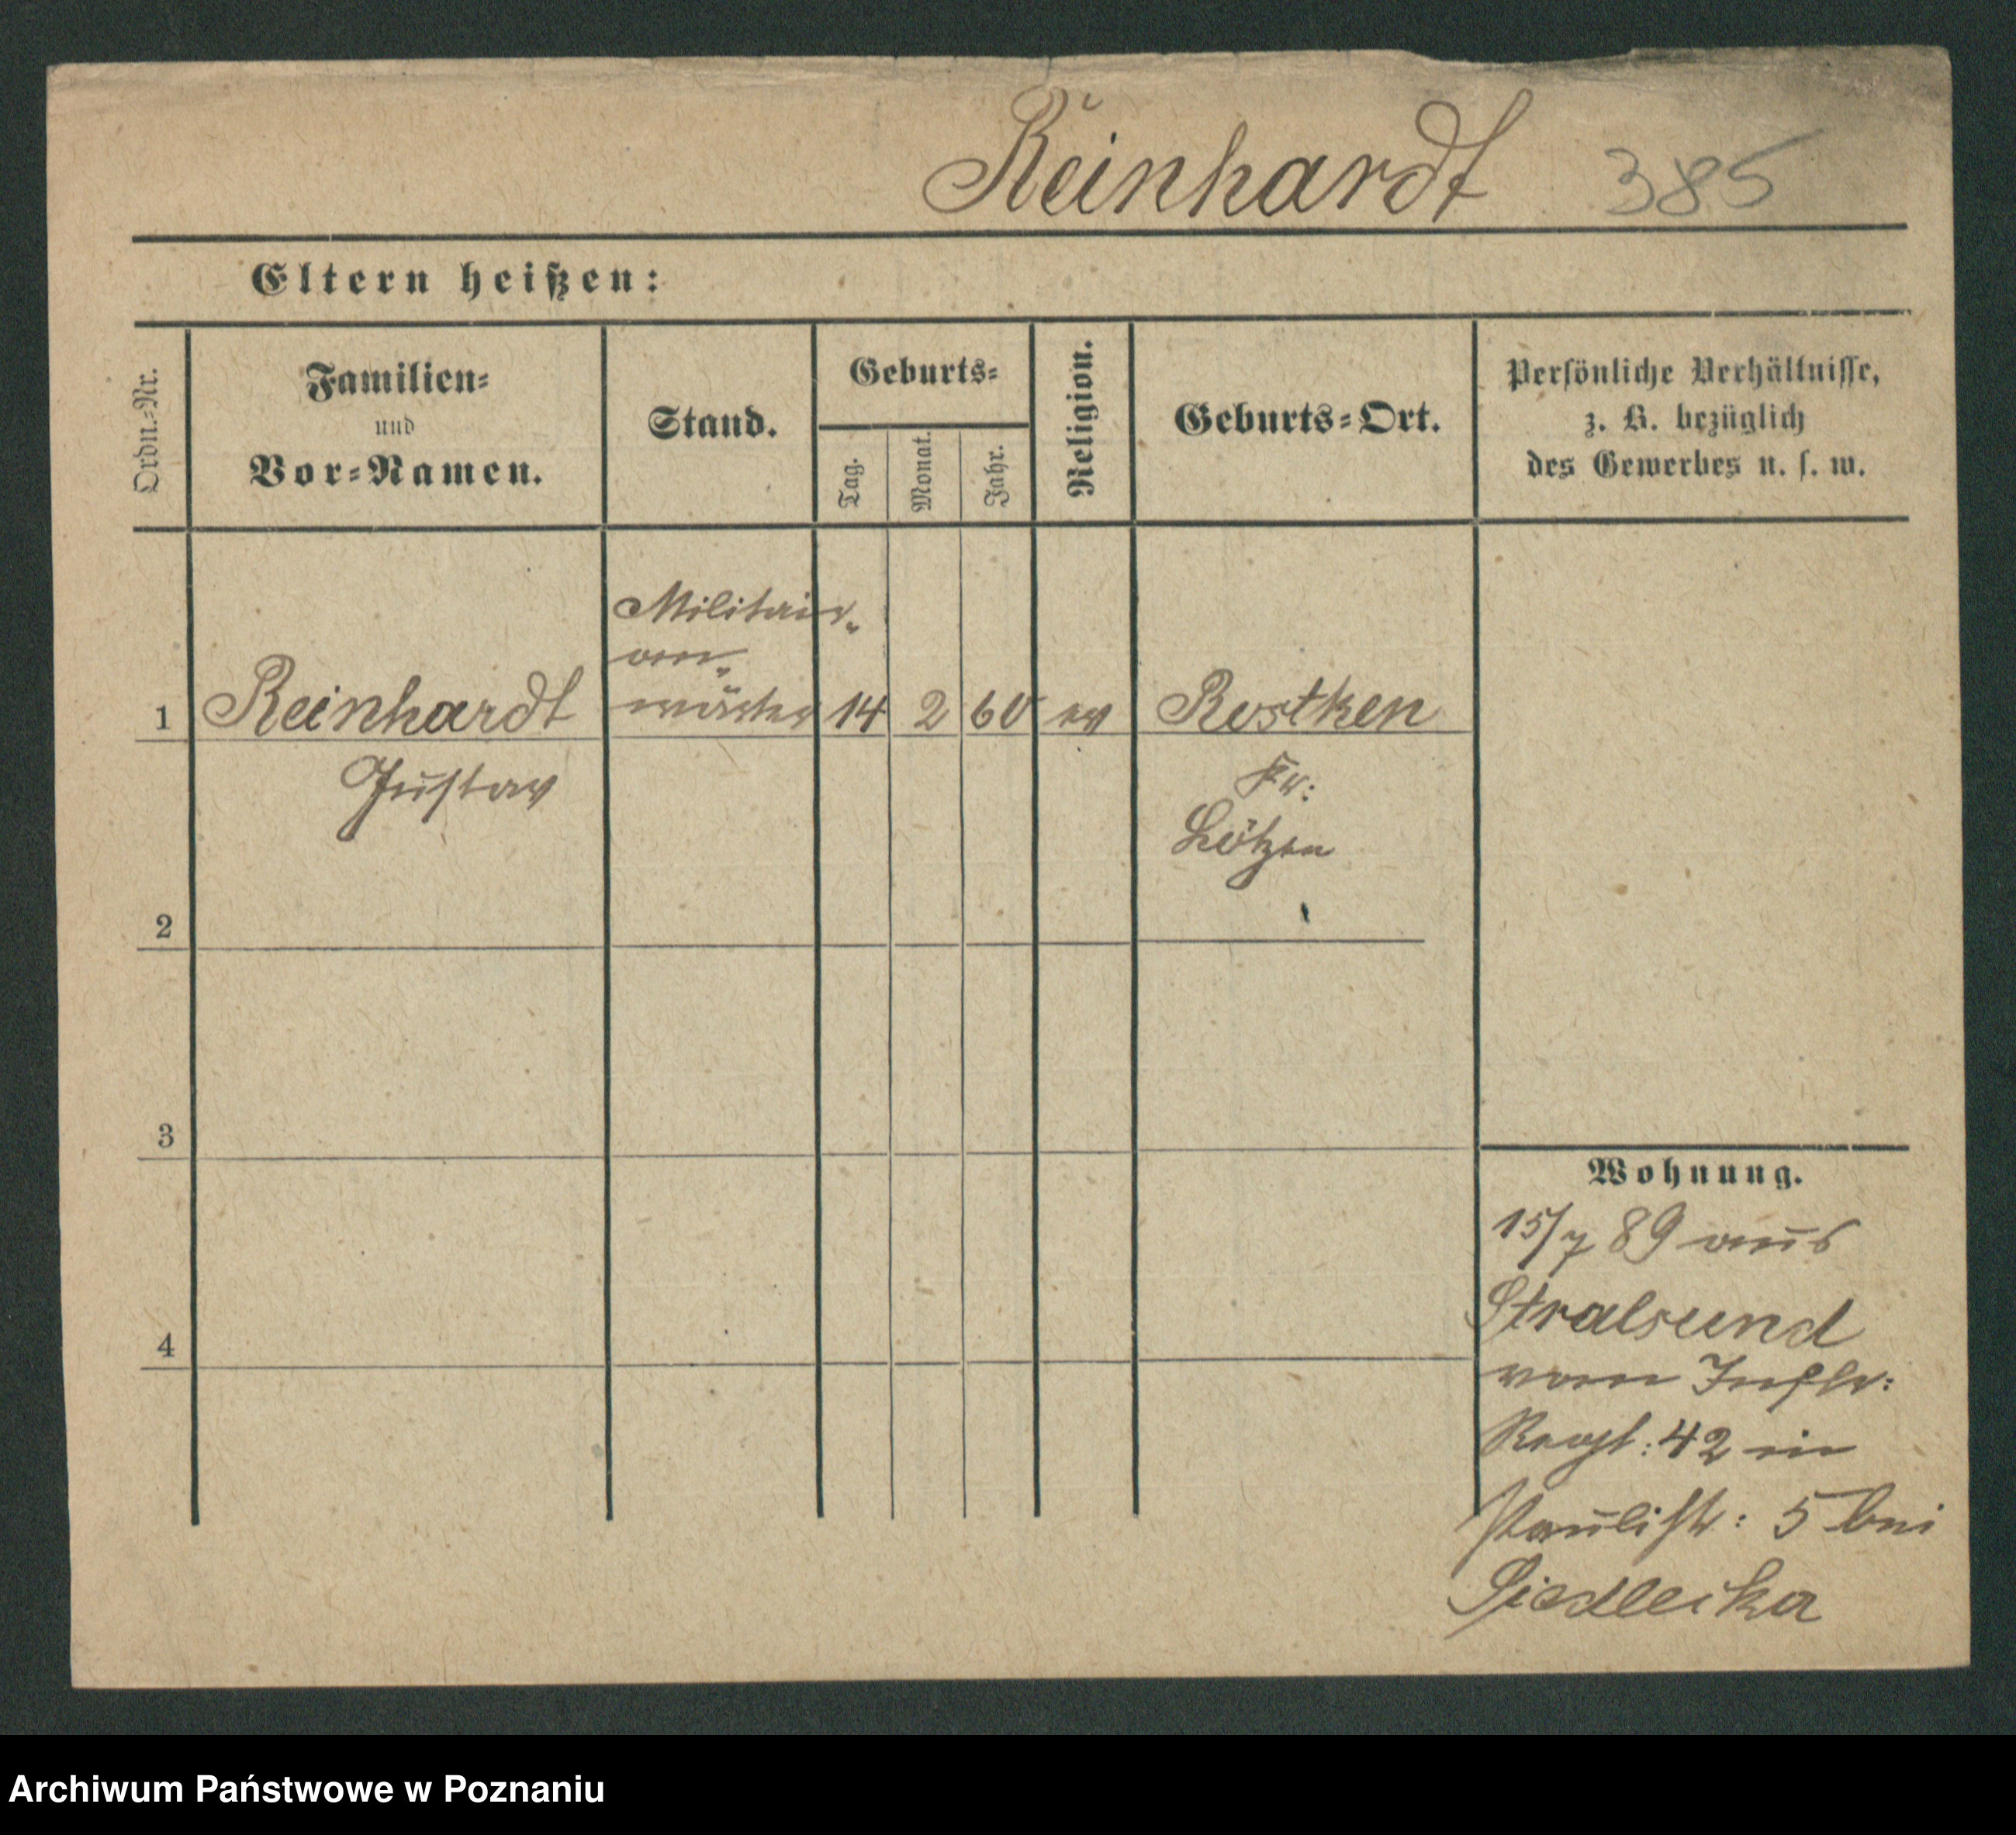 Reinhardt 385
Eltern heißen:
Ordn.-Nr.
Familien-
und
Vor-Namen.
Stand.
Geburts-
Tag.
Monat.
Jahr.
Religion.
Geburts-Ort.
Persönliche Verhältnisse,
z. B. bezüglich
des Gewerbes u. s. w.
Militair-
an-
1 Reinhardt wärter 14 2 60 ev Rostken
Gustav
Kr:
Lötzen
2
3
4
Wohnung.
15/7 89 aus
Stralsund
vom Inftr:
Regt: 42 in
Paulistr: 5 bei
Siedlecka
Archiwum Państwowe w Poznaniu